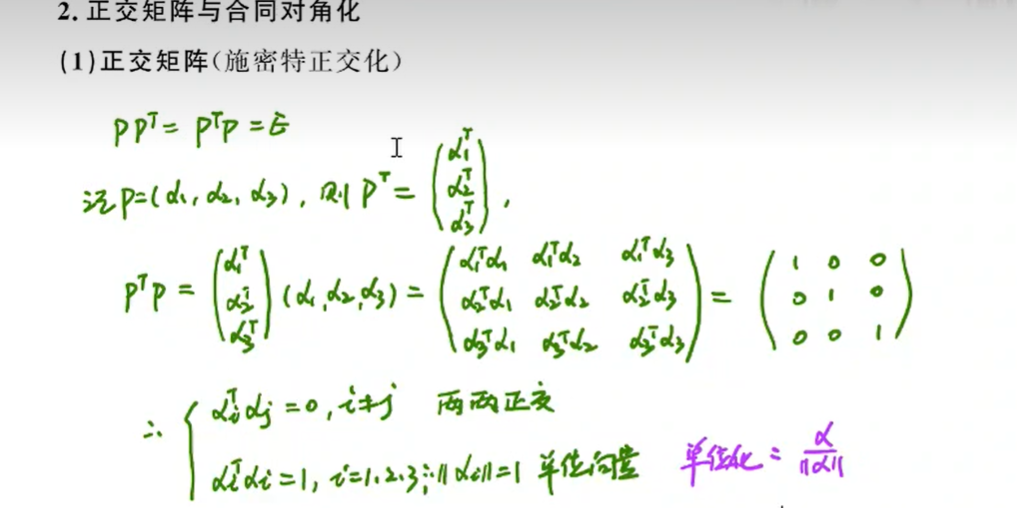 2. 正交矩阵与合同对角化
(1)正交矩阵(施密特正交化)
PPᵀ = PᵀP = E
记P=(α₁, α₂, α₃), 则Pᵀ = (α₁ᵀ α₂ᵀ α₃ᵀ),
PᵀP = (α₁ᵀ α₂ᵀ α₃ᵀ) (α₁, α₂, α₃) = (α₁ᵀα₁ α₁ᵀα₂ α₁ᵀα₃ α₂ᵀα₁ α₂ᵀα₂ α₂ᵀα₃ α₃ᵀα₁ α₃ᵀα₂ α₃ᵀα₃) = (1 0 0 0 1 0 0 0 1)
∴ { αᵢᵀαⱼ = 0, i≠j 两两正交
αᵢᵀαᵢ = 1, i=1,2,3 ∴ ||αᵢ||=1 单位向量 单位化: α/||α||